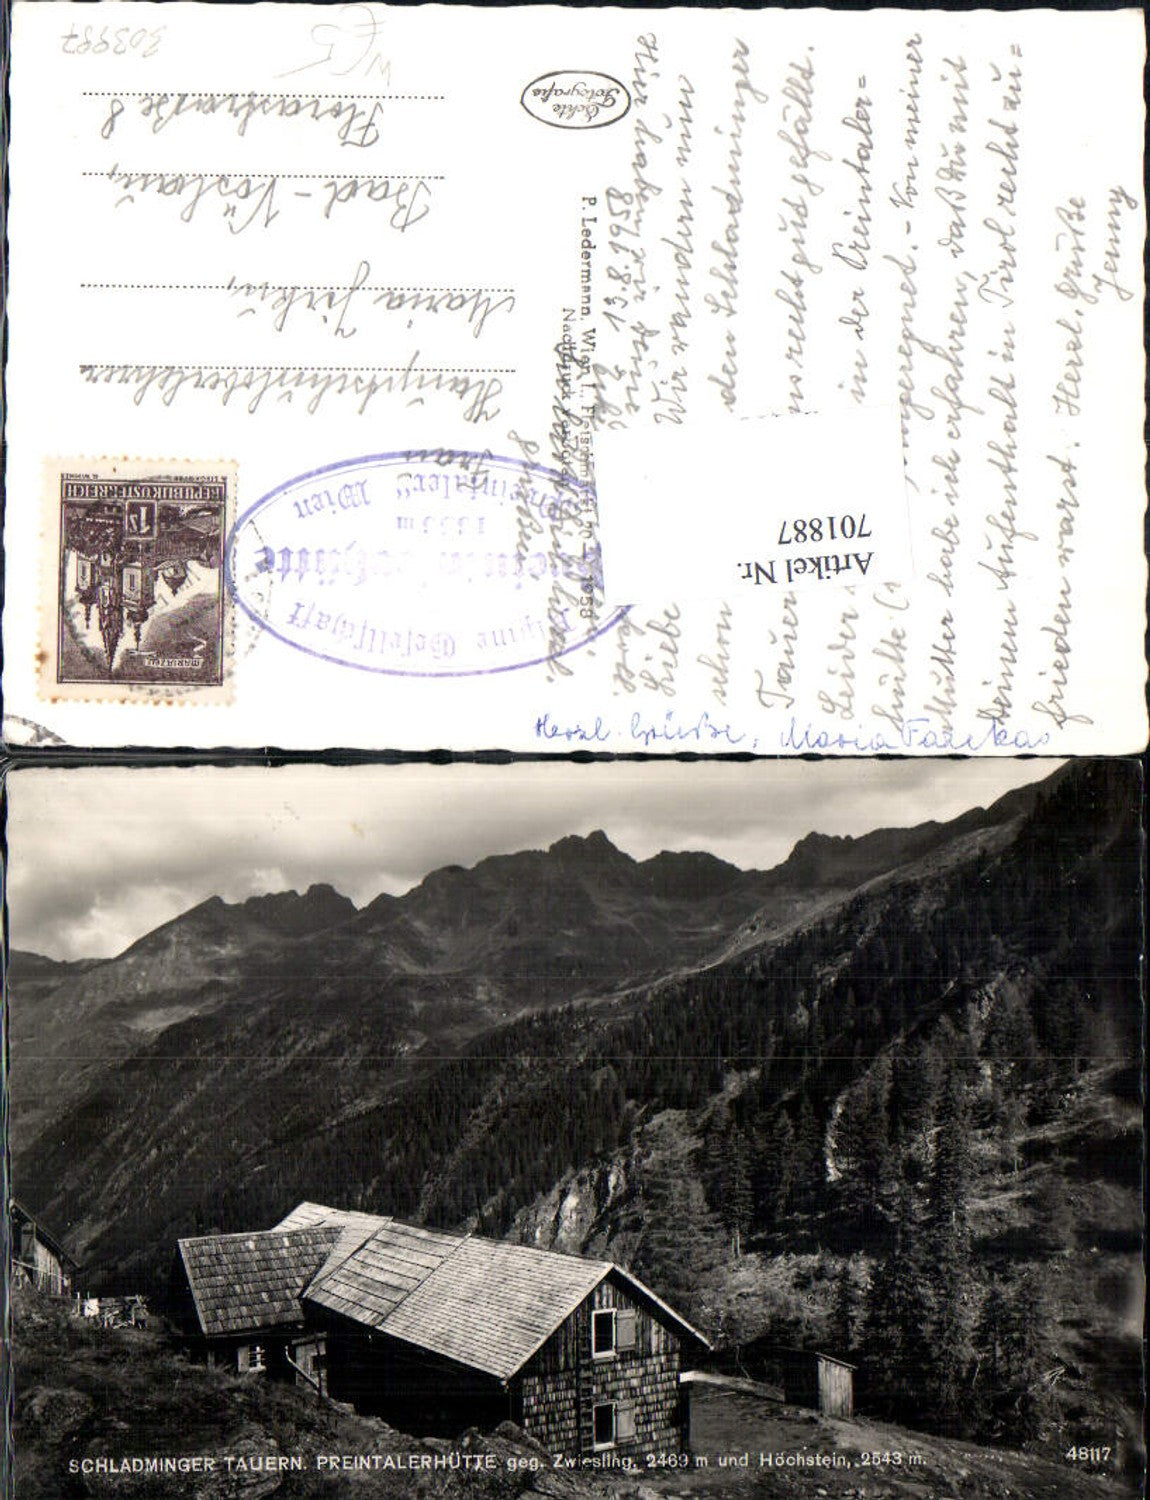 303997
W/5
Echte
Fotografie
Hauptschuloberlehrer
Maria Jirků,
Bad-Vöslau,
Florastraße 8
P. Ledermann, Wien I., Fleischmarkt 20 — 1958
REPUBLIK ÖSTERREICH
1 S
MARIAZELL
Alpine Gesellschaft
Preintalerhütte
1656 m
„Preintaler“ Wien
Artikel Nr.
701887
13.8.1958
Liebe
Wir wandern nun
schon
den Schladminger
Tauern
recht gut gefällt.
Leider
in der Preintaler=
hütte
eingeregnet. - Von meiner
Mutter habe ich erfahren, daß Du mit
Deinem Aufenthalt in Tirol recht zu=
frieden warst. Herzl. Grüße
Jenny
Herzl. Grüße, Maria Farkas
SCHLADMINGER TAUERN. PREINTALERHÜTTE geg. Zwiesling, 2469 m und Höchstein, 2543 m.
48117